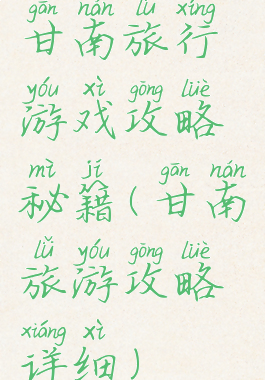 gān nán lǚ xíng
甘南旅行
yóu xì gōng lüè
游戏攻略
mì jí ( gān nán
秘籍(甘南
lǚ yóu gōng lüè
旅游攻略
xiáng xì
详细)